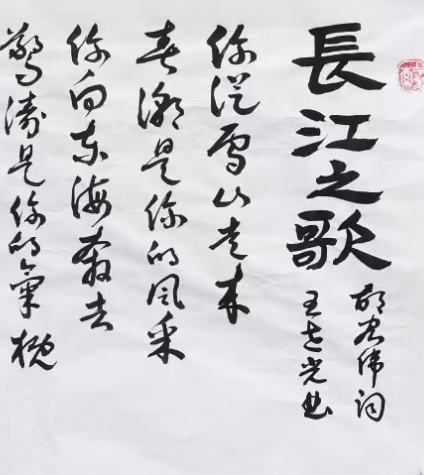 長江之歌
胡宏伟词
王世光曲
你從雪山走来
春潮是你的风采
你向东海奔去
驚涛是你的氣概